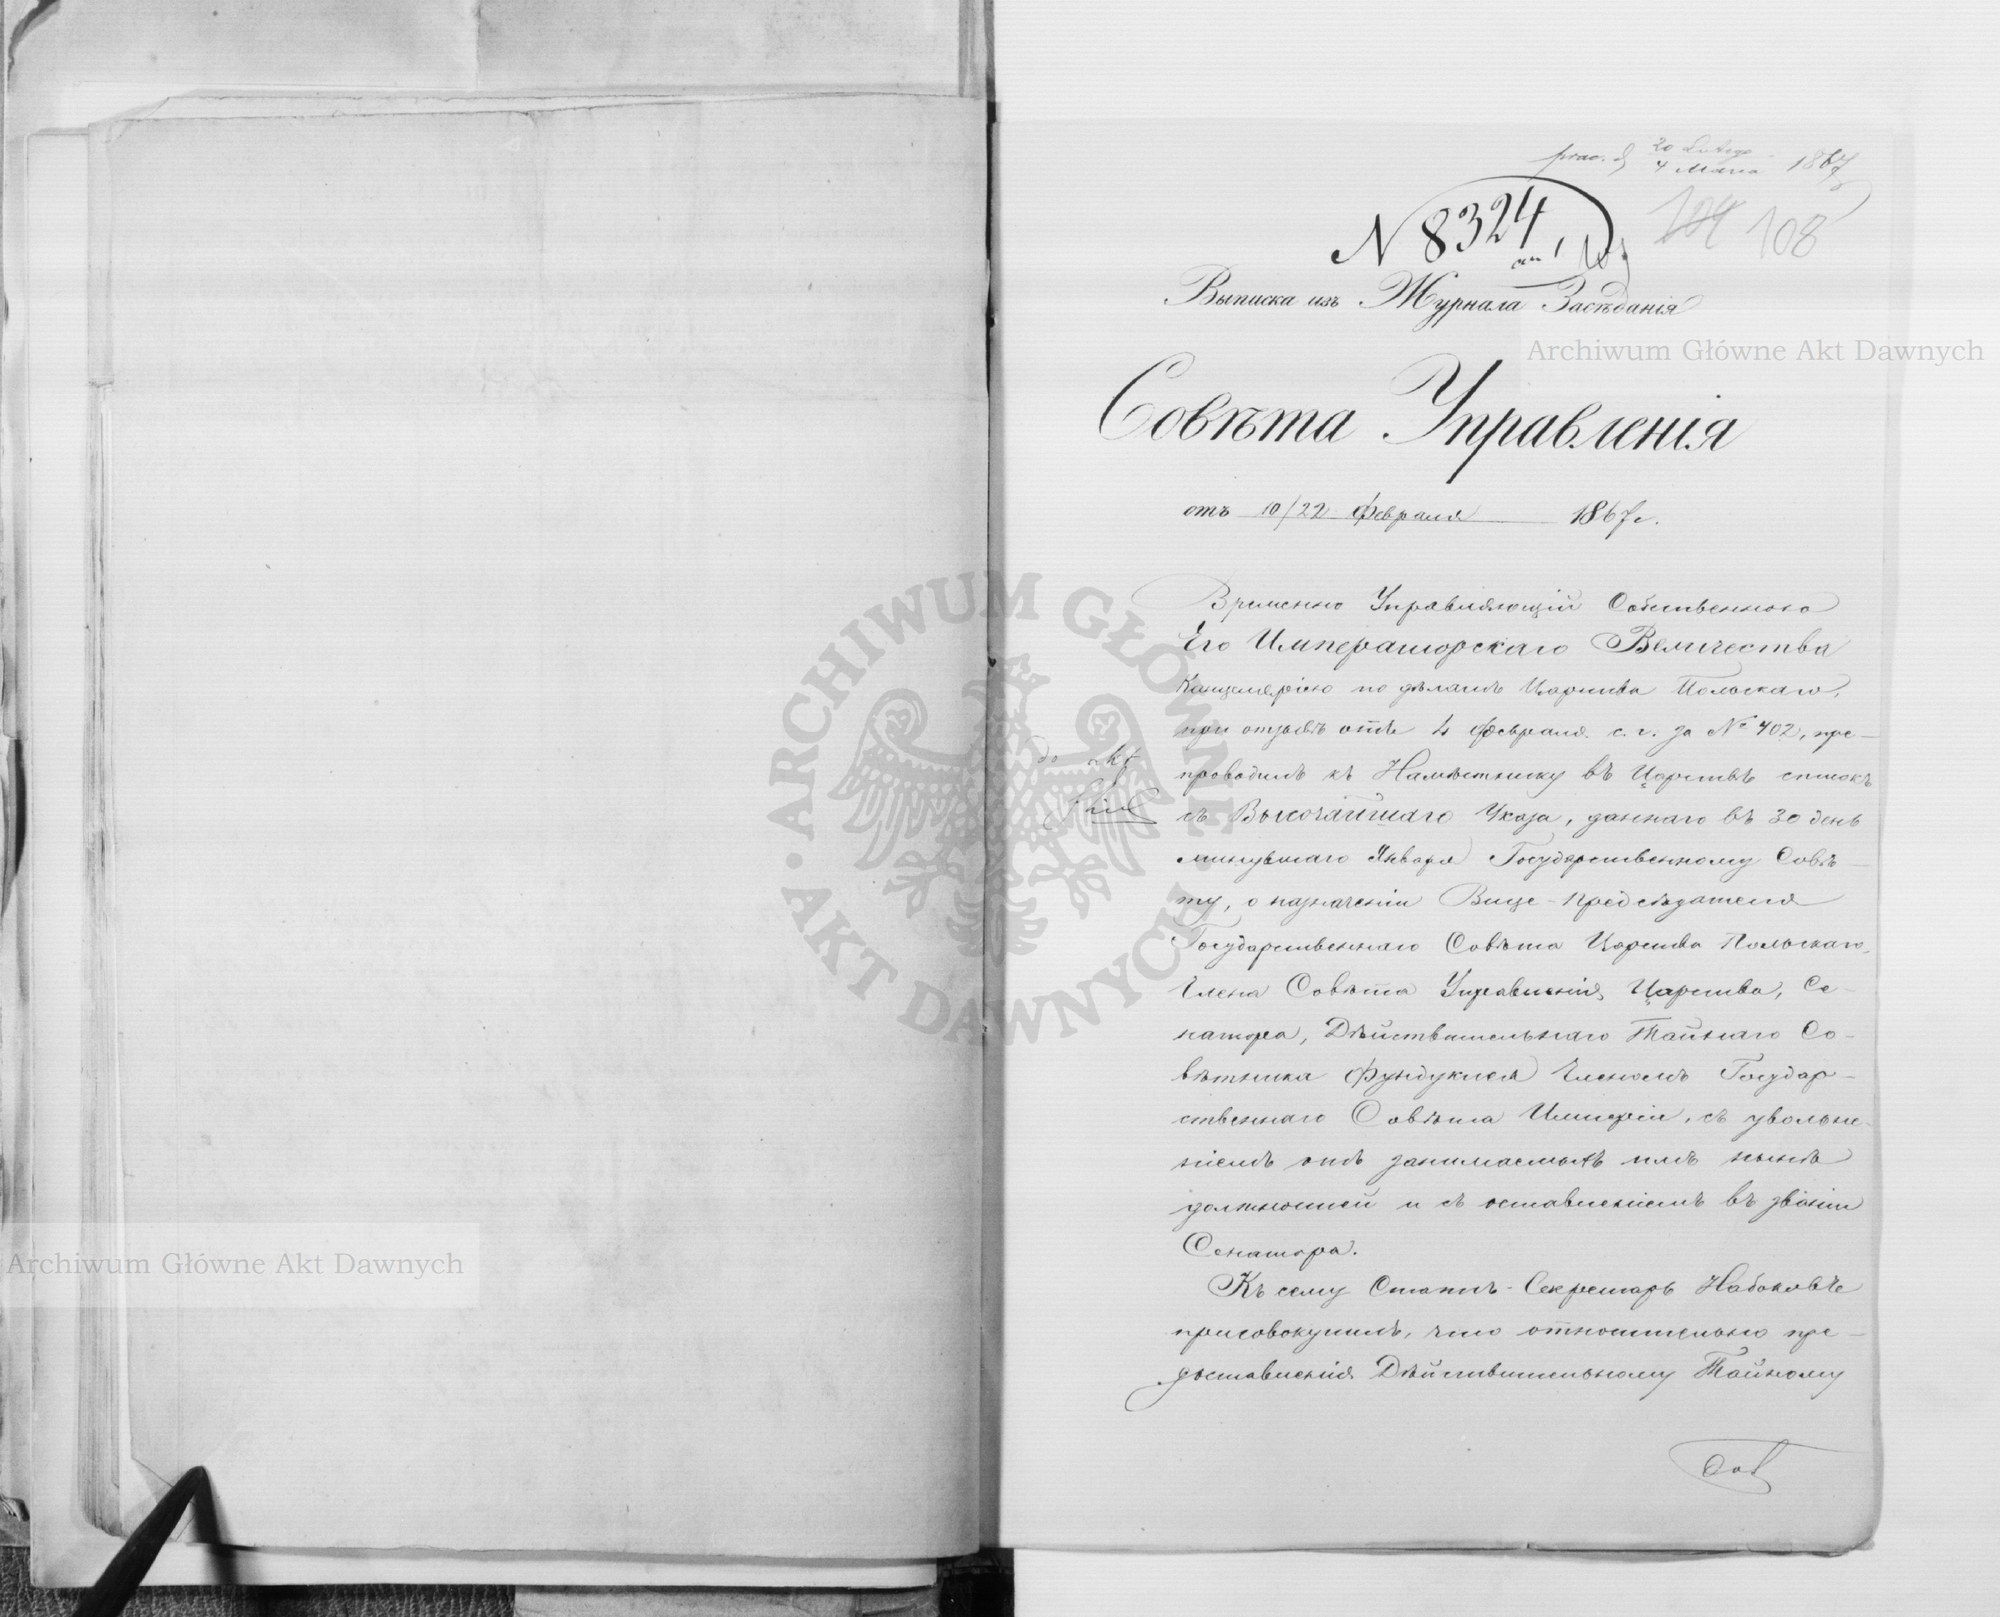 20 Lutego
4 Marca 1867
N 8324
104 108
Выписка изъ Журнала Засѣданія
Archiwum Główne Akt Dawnych
Совѣта Управленія
отъ 10/22 Февраля 1867 г.
Временно Управляющій Собственною
Его Императорскаго Величества
Канцеляріею по дѣламъ Царства Польскаго,
при отзывѣ отъ 4 Февраля с. г. за № 402, пре-
проводилъ къ Намѣстнику въ Царствѣ списокъ
do akt
съ Высочайшаго Указа, даннаго въ 30 день
минувшаго Января Государственному Совѣ-
ту, о назначеніи Вице-Предсѣдателя
Государственнаго Совѣта Царства Польскаго,
Члена Совѣта Управленія Царства, Се-
натора, Дѣйствительнаго Тайнаго Со-
вѣтника Фундуклея Членомъ Государ-
ственнаго Совѣта Имперіи, съ увольне-
ніемъ отъ занимаемыхъ имъ нынѣ
должностей и съ оставленіемъ въ званіи
Сенатора.
Archiwum Główne Akt Dawnych
Къ сему Статсъ-Секретарь Набоковъ
присовокупилъ, что относительно пре-
доставленія Дѣйствительному Тайному
Сов
ARCHIWUM GŁÓWNE AKT DAWNYCH